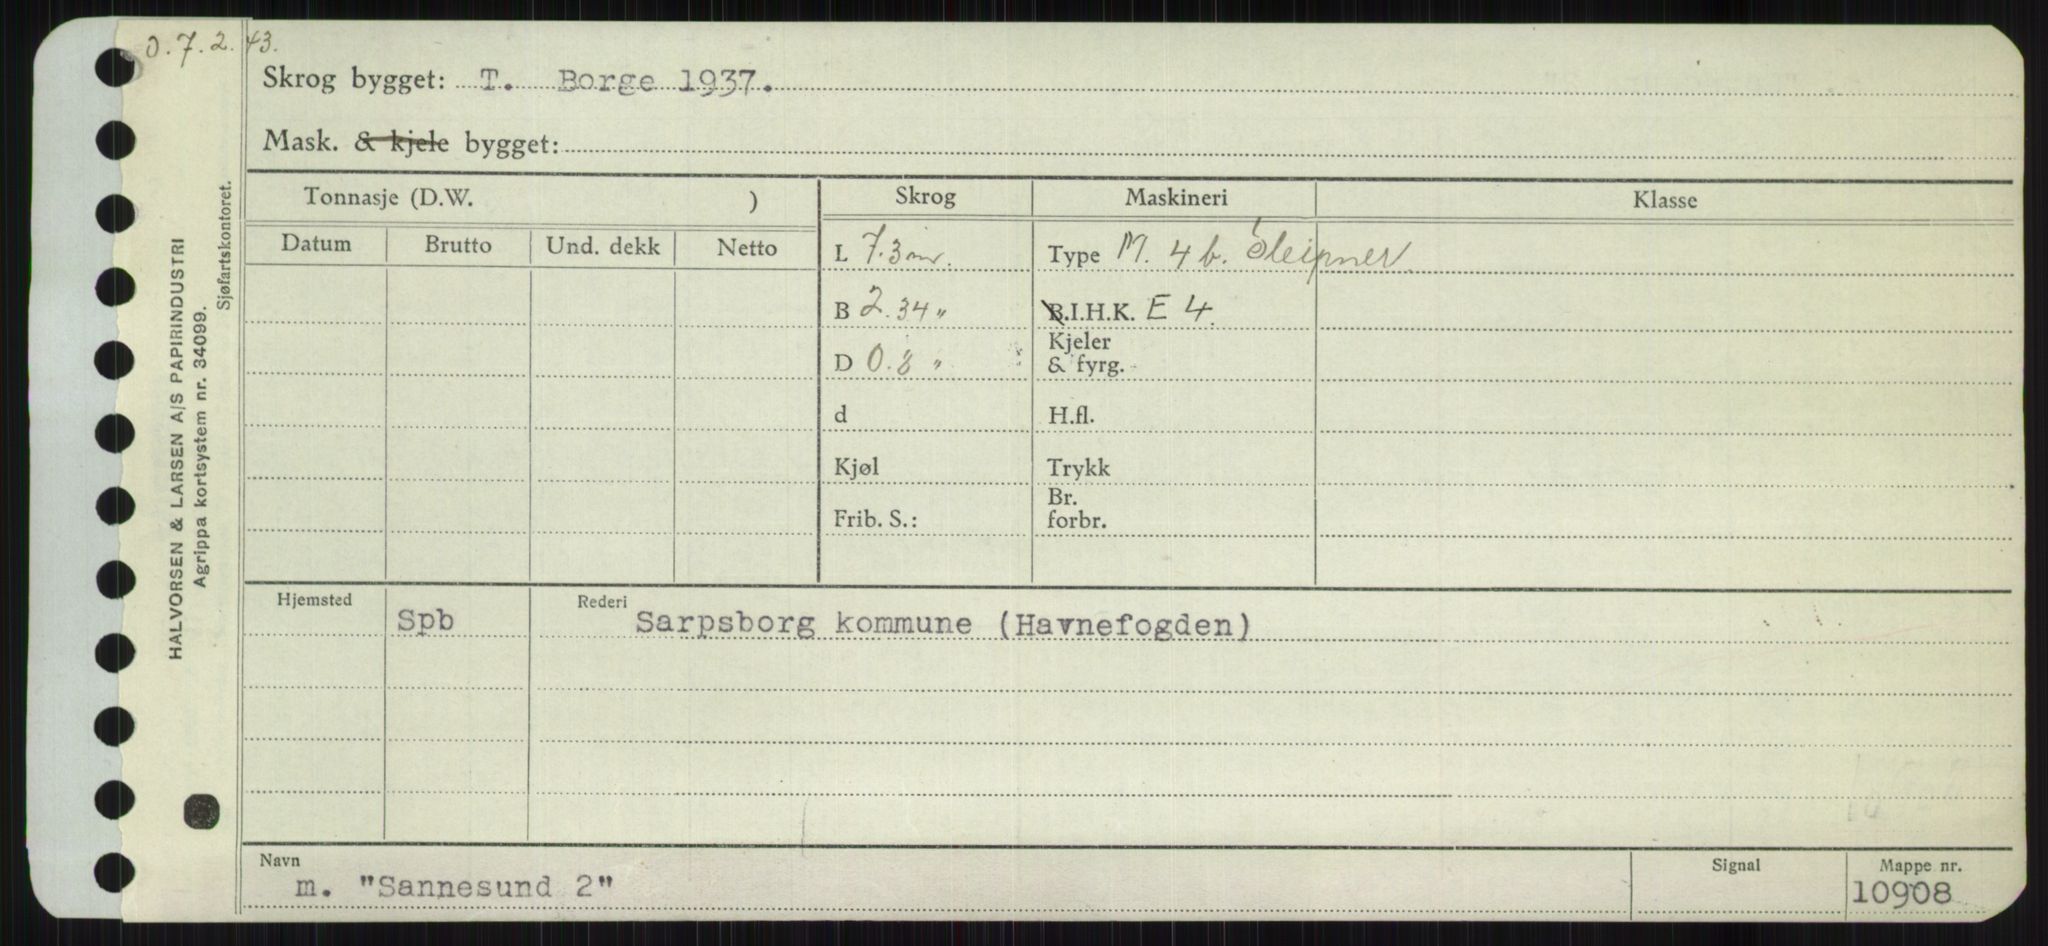 O.7.2.43.
Skrog bygget: T. Borge 1937.
Mask. & kjele bygget:
HALVORSEN & LARSEN A/S PAPIRINDUSTRI
Agrippa kortsystem nr. 34099.
Sjøfartskontoret.
Tonnasje (D.W. ) Skrog Maskineri Klasse
Datum Brutto Und. dekk Netto
L 7.3 m. Type M. 4 b. Sleipner
B 2.34 " B.I.H.K. E 4.
D 0.8 " Kjeler & fyrg.
d H.fl.
Kjøl Trykk
Frib. S.: Br. forbr.
Hjemsted Spb Rederi Sarpsborg kommune (Havnefogden)
Navn Signal Mappe nr.
m. "Sannesund 2" 10908